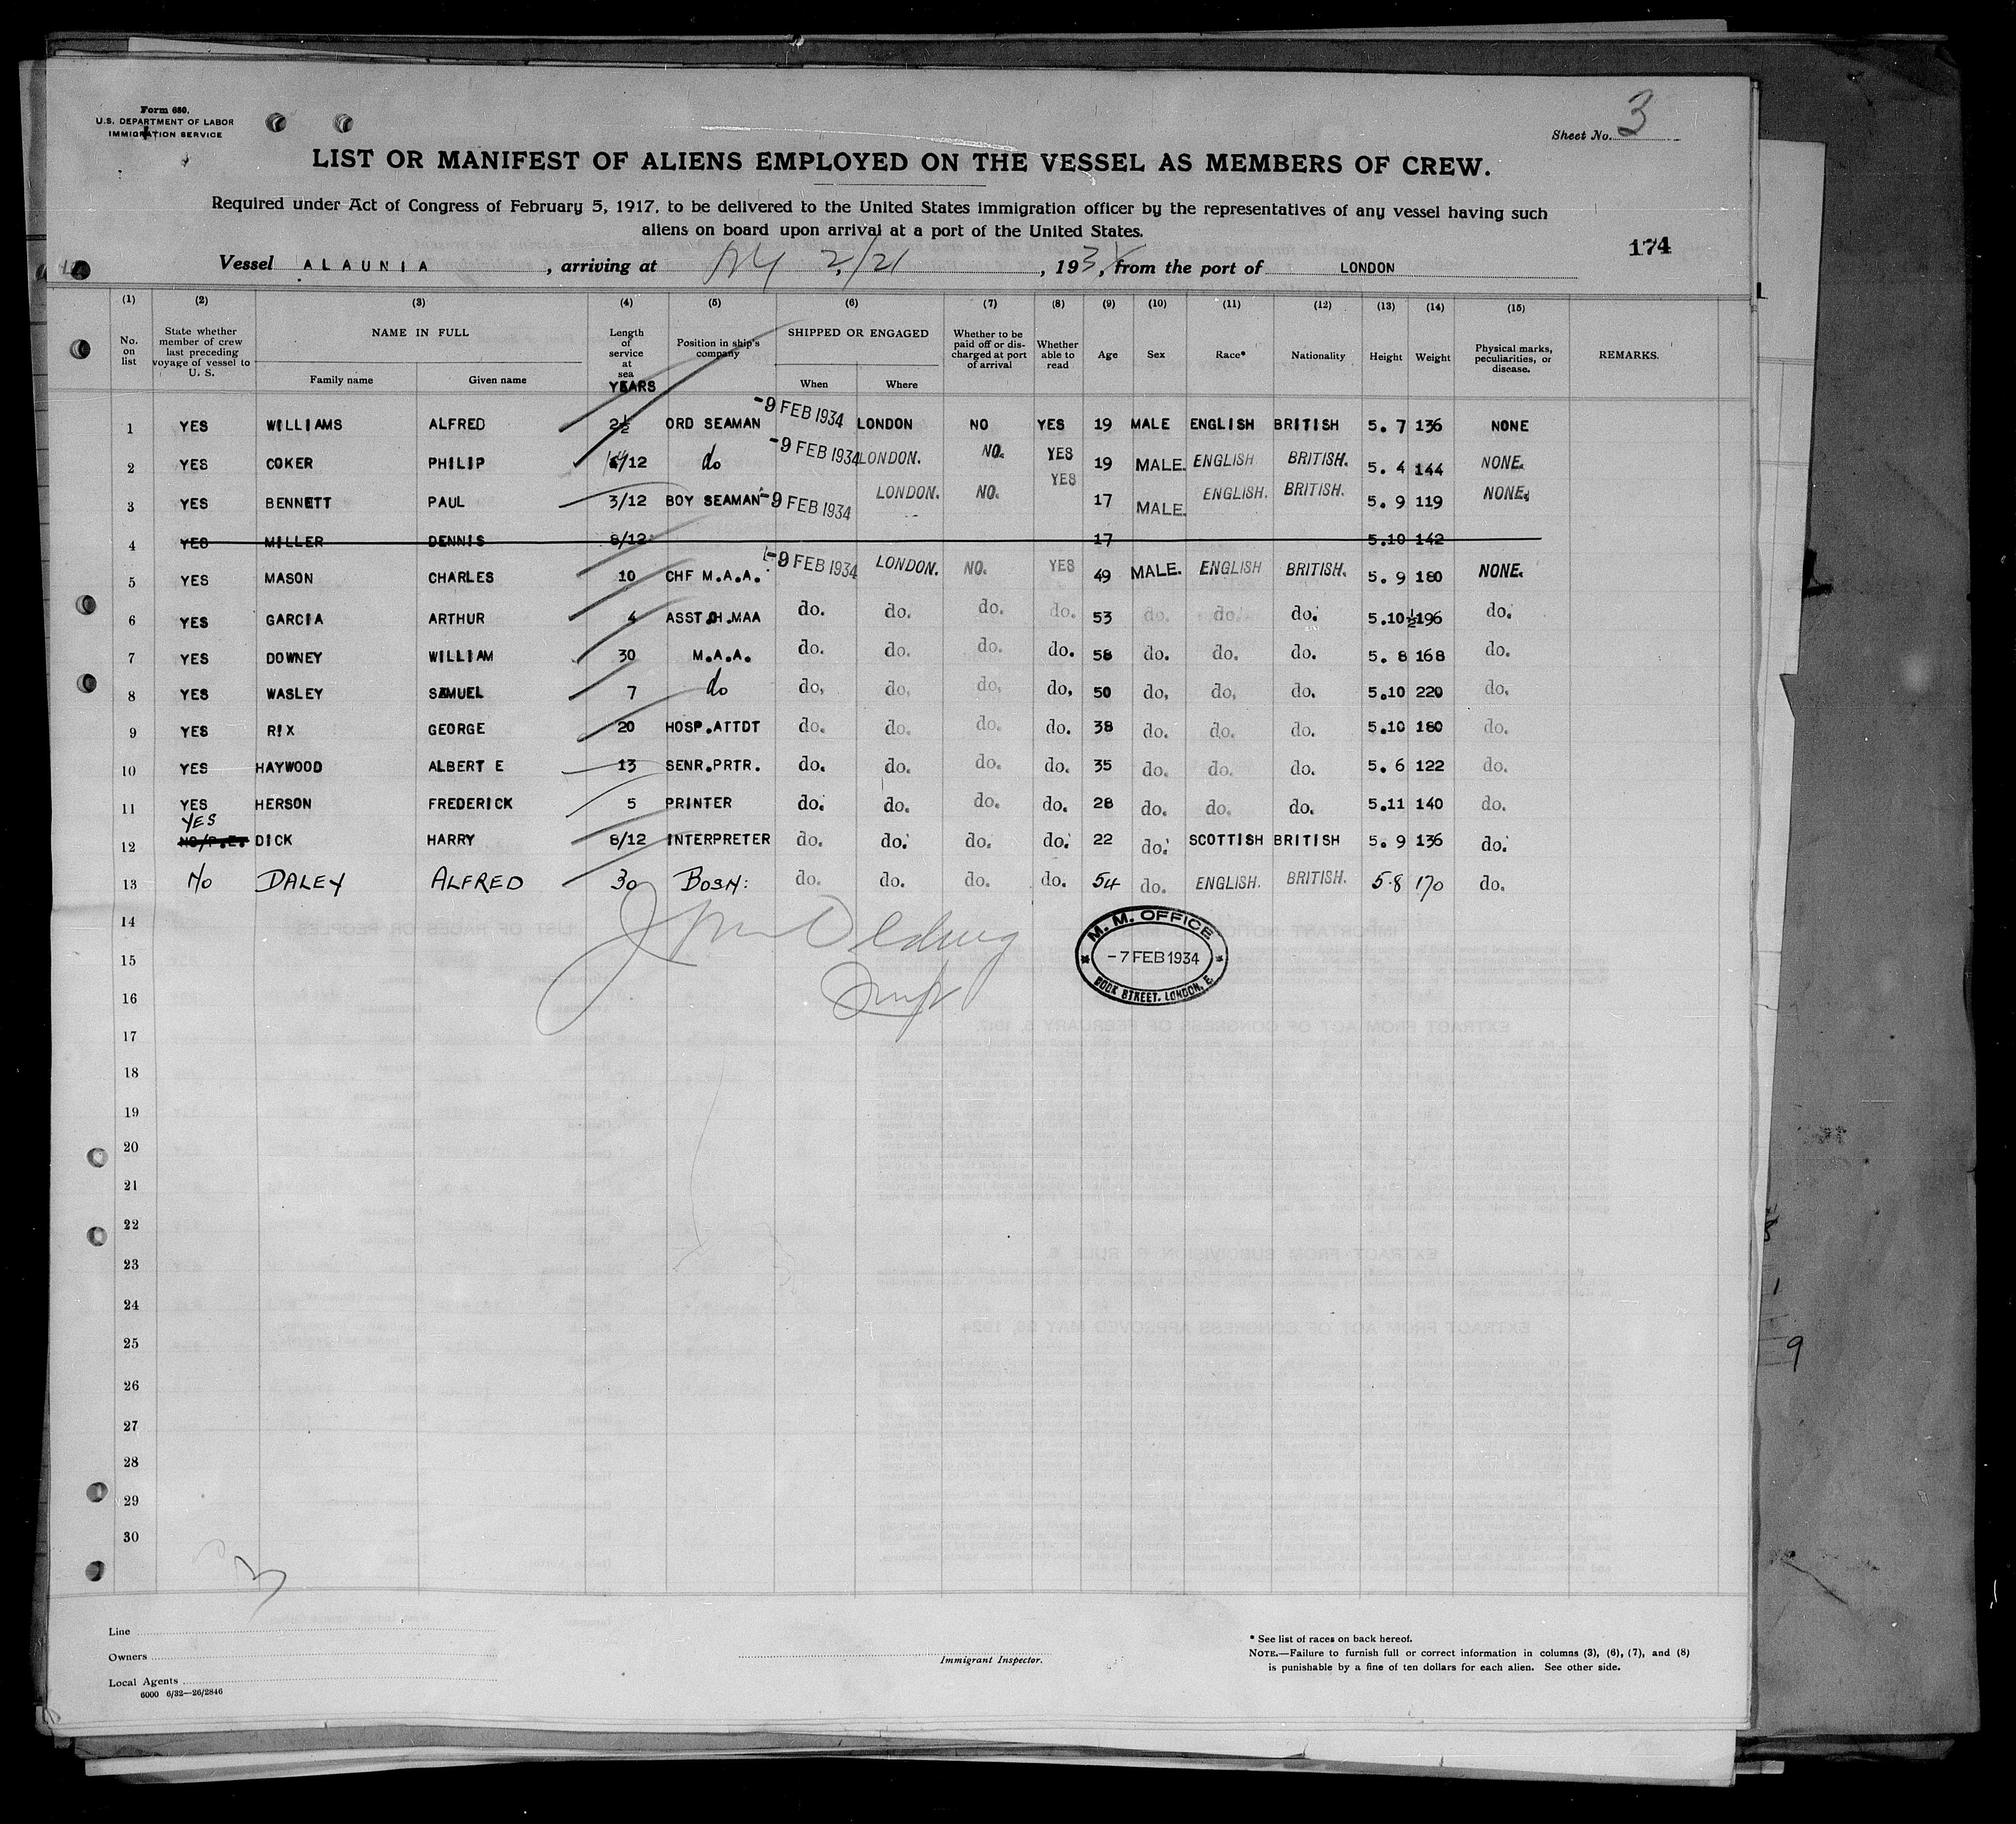 Form 680.
U.S. DEPARTMENT OF LABOR
IMMIGRATION SERVICE
Sheet No. 3
LIST OR MANIFEST OF ALIENS EMPLOYED ON THE VESSEL AS MEMBERS OF CREW.
Required under Act of Congress of February 5, 1917, to be delivered to the United States immigration officer by the representatives of any vessel having such
aliens on board upon arrival at a port of the United States.
174
Vessel ALAUNIA, arriving at NY 2/21, 193, from the port of LONDON
(1) (2) (3) (4) (5) (6) (7) (8) (9) (10) (11) (12) (13) (14) (15)
No. on list
State whether member of crew last preceding voyage of vessel to U. S.
NAME IN FULL
Family name Given name
Length of service at sea YEARS
Position in ship's company
SHIPPED OR ENGAGED
When Where
Whether to be paid off or discharged at port of arrival
Whether able to read
Age Sex Race* Nationality Height Weight
Physical marks, peculiarities, or disease.
REMARKS.
1 YES WILLIAMS ALFRED 2½ ORD SEAMAN -9 FEB 1934 LONDON NO YES 19 MALE ENGLISH BRITISH 5. 7 136 NONE
2 YES COKER PHILIP /12 do -9 FEB 1934 LONDON. NO. YES 19 MALE. ENGLISH BRITISH. 5. 4 144 NONE.
3 YES BENNETT PAUL 3/12 BOY SEAMAN -9 FEB 1934 LONDON. NO. YES 17 MALE. ENGLISH. BRITISH. 5. 9 119 NONE.
4 YES MILLER DENNIS 8/12 17 5.10 142
5 YES MASON CHARLES 10 CHF M.A.A. -9 FEB 1934 LONDON. NO. YES 49 MALE. ENGLISH BRITISH. 5. 9 180 NONE.
6 YES GARCIA ARTHUR 4 ASST.CH.MAA do. do. do. do. 53 do. do. do. 5.10½ 196 do.
7 YES DOWNEY WILLIAM 30 M.A.A. do. do. do. do. 58 do. do. do. 5. 8 168 do.
8 YES WASLEY SAMUEL 7 do do. do. do. do. 50 do. do. do. 5.10 220 do.
9 YES RIX GEORGE 20 HOSP.ATTDT do. do. do. do. 38 do. do. do. 5.10 180 do.
10 YES HAYWOOD ALBERT E 13 SENR.PRTR. do. do. do. do. 35 do. do. do. 5. 6 122 do.
11 YES HERSON FREDERICK 5 PRINTER do. do. do. do. 28 do. do. do. 5.11 140 do.
YES
12 NO/P.E. DICK HARRY 8/12 INTERPRETER do. do. do. do. 22 do. SCOTTISH BRITISH 5. 9 136 do.
13 No DALEY ALFRED 30 BOSN: do. do. do. do. 54 do. ENGLISH. BRITISH. 5.8 170 do.
14
15
16
17
18
19
20
21
22
23
24
25
26
27
28
29
30
M. M. OFFICE
-7 FEB 1934
DOCK STREET. LONDON, E.
3
Line
Owners
Local Agents
6000 6/32—26/2846
Immigrant Inspector.
* See list of races on back hereof.
NOTE.—Failure to furnish full or correct information in columns (3), (6), (7), and (8)
is punishable by a fine of ten dollars for each alien. See other side.
9